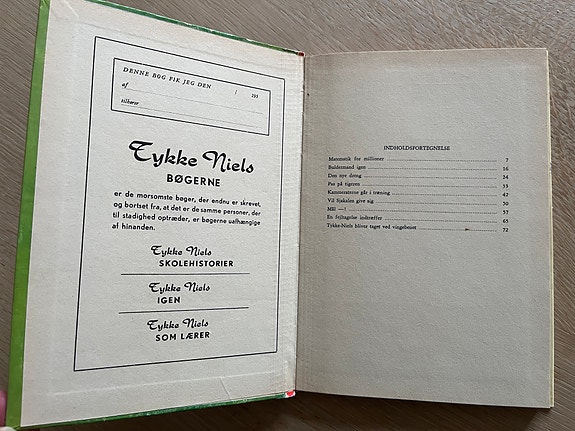 DENNE BOG FIK JEG DEN / 195
af
tilhører
Tykke Niels
BØGERNE
er de morsomste bøger, der endnu er skrevet,
og bortset fra, at det er de samme personer, der
til stadighed optræder, er bøgerne uafhængige
af hinanden.
Tykke Niels
SKOLEHISTORIER
Tykke Niels
IGEN
Tykke Niels
SOM LÆRER
INDHOLDSFORTEGNELSE
Matematik for millioner 7
Buldermand igen 16
Den nye dreng 24
Pas på tigeren 33
Kammeraterne går i træning 42
Vil Sjakalen give sig 50
Mll —! 57
En fejltagelse indtræffer 65
Tykke-Niels bliver taget ved vingebenet 72